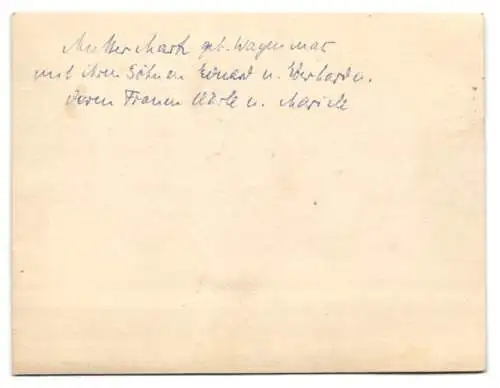 Mutter Mark geb. Wagenmar
mit ihren Söhnen Eduard u. Eberhard u.
deren Frauen u. Maride